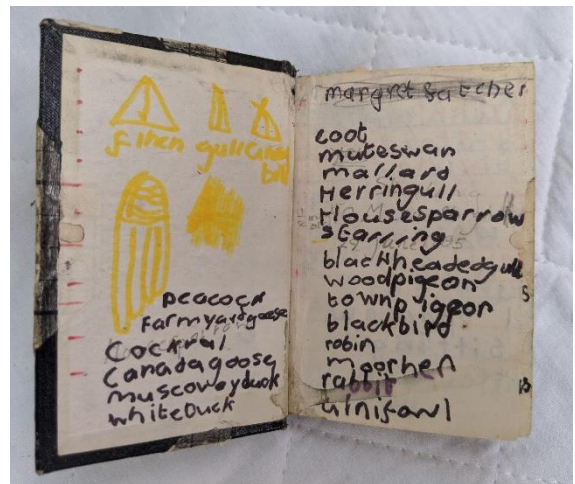 finch gull Canada
bill
peacock
Farmyardgoose
Cockral
Canadagoose
muscoveyduck
whiteDuck
margret Satcher
coot
muteswan
mallard
Herringull
Housesparrow
starring
blackheadedgull
woodpigeon
townpigeon
blackbird
robin
moorhen
rabbit
ulnifowl